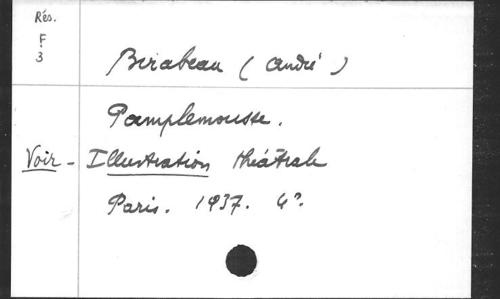 Rés.
F
3
Birabeau (André)
Pamplemousse.
Voir - Illustration théâtrale
Paris. 1937. 4°.